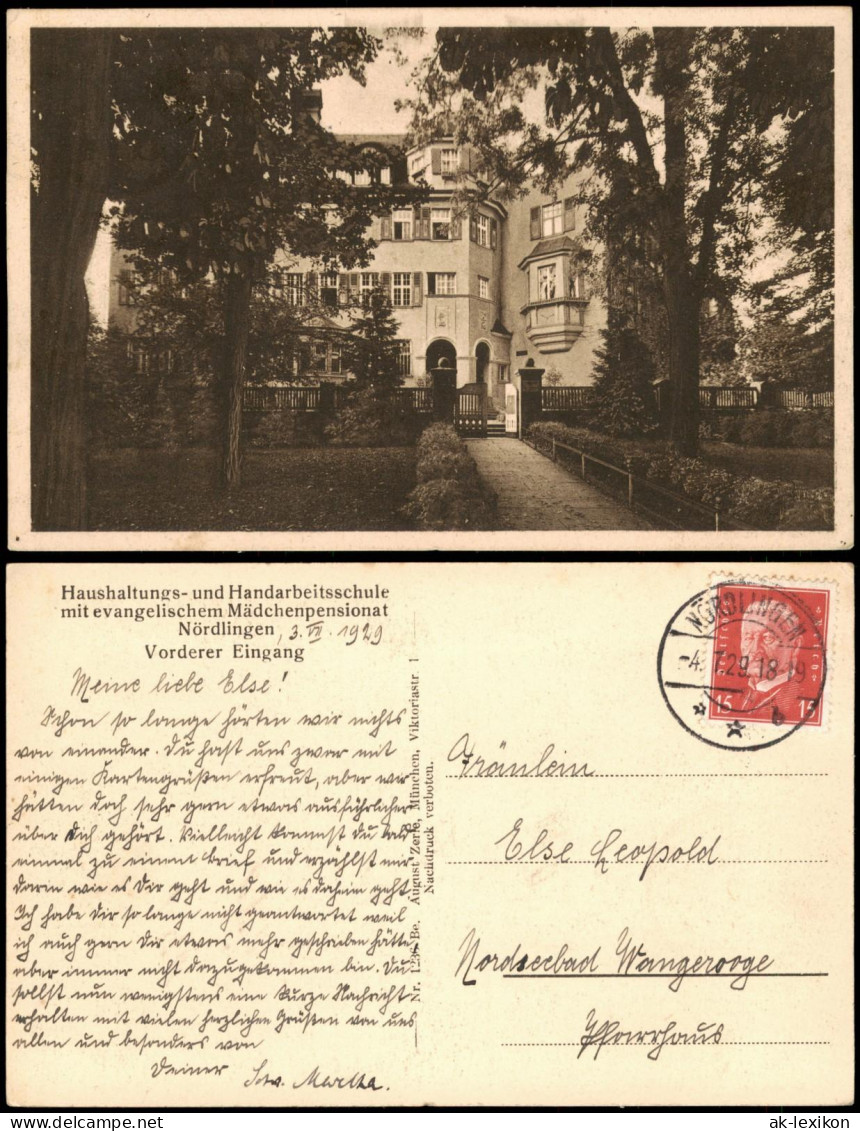 Haushaltungs- und Handarbeitsschule
mit evangelischem Mädchenpensionat
Nördlingen, 3. VII. 1929
Vorderer Eingang
Meine liebe Else!
Schon so lange hörten wir nichts
von einender. Du hast uns zwar mit
einigen Kartengrüßen erfreut, aber wir
hätten doch sehr gern etwas ausführlicher
über Dich gehört. Vielleicht kommst Du bald
einmal zu einem Brief und erzählst mir
darin wie es Dir geht und wie es daheim geht
Ich habe Dir so lange nicht geantwortet weil
ich auch gern Dir etwas mehr geschrieben hätte
aber immer nicht dazugekommen bin. Du
sollst nun wenigstens eine kurze Nachricht
erhalten mit vielen herzlichen Grüßen von uns
allen und besonders von
Deiner Schw. Martha.
August Zerle, München, Viktoriastr. 1
Nachdruck verboten.
NÖRDLINGEN
-4.7.29.18-19
b
15 15
Fräulein
Else Leopold
Nordseebad Wangerooge
Pfarrhaus
ak-lexikon.com